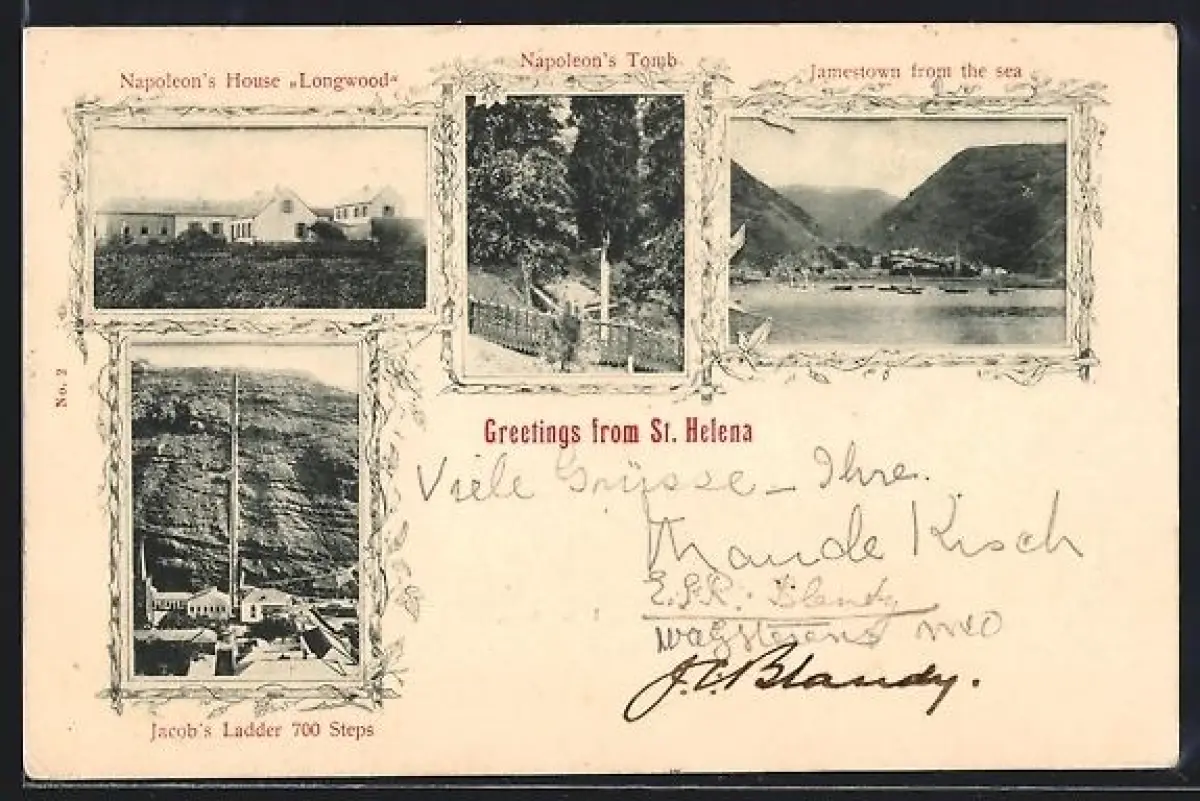 Napoleon's House „Longwood“
Napoleon's Tomb
Jamestown from the sea
No. 2
Greetings from St. Helena
Viele Grüsse – Ihre.
Maude Kisch
E.F.R. Blandy
J.C. Blandy.
Jacob's Ladder 700 Steps